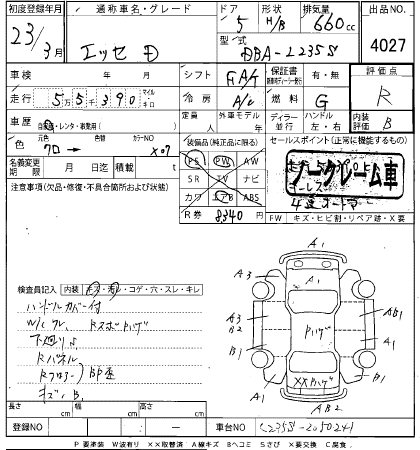 初度登録年月 通称車名・グレード ドア 形状 排気量 出品NO.
23/3月 エッセ D 5 H/B 660cc 4027
型式 DBA-L235S
車検 年 月 シフト FA/T 保証書 有・無 評価点
走行 55千390 マイル キロ 冷房 A/C 燃料 G R
車歴 自家用・レンタ・教習用 定員 人 外車モデル 年 ディーラー 並行 ハンドル 左・右 内装評価 B
色 元色 クロ → 色替 カラーNO X07 装備品(純正品に限る) セールスポイント(正常に機能する)
名義変更期限 月 日 積載 t PS PW AW
SR TV ナビ ノークレーム車
注意事項(欠品・修復・不具合箇所および状態) カワ エアB ABS
R券 8340円 FW キズ・ヒビ割・リペア跡・X要
検査員記入 内装 キズ・汚レ・コゲ・穴・スレ・キレ
ハンドルカバー付
下廻りサ
Rパネル
Rフロアー
キズ・B.
A1
A3 A1
A3 B2 AB1
ハゲ
B1 A1
XXハゲ B1
AB2
長さ cm 幅 cm 高さ cm
登録NO 車台NO L235S-2050241
P 要塗装 W波有り XX取替済 A線キズ Bヘコミ Sさび X要交換 C腐食